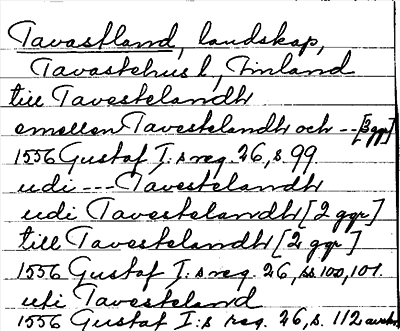 Tavastland, landskap,
Tavastehus l, Finland
till Tavestelandh
emellen Tavestelandh och --- [3 ggr]
1556 Gustaf I:s reg. 26, s. 99.
udi --- Tavestelandh
udi Tavestelandh [2 ggr]
till Tavestelandh [2 ggr]
1556 Gustaf I:s reg. 26, ss. 100, 101.
uti Tavesteland
1556 Gustaf I:s reg. 26, s. 112